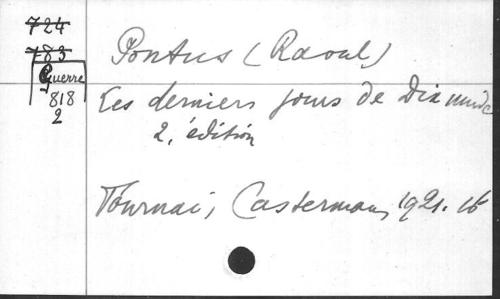 724
783
Guerre
818
2
Pontus (Raoul)
Les derniers jours de Dixmude
2. édition
Tournai, Casterman, 1921. 16